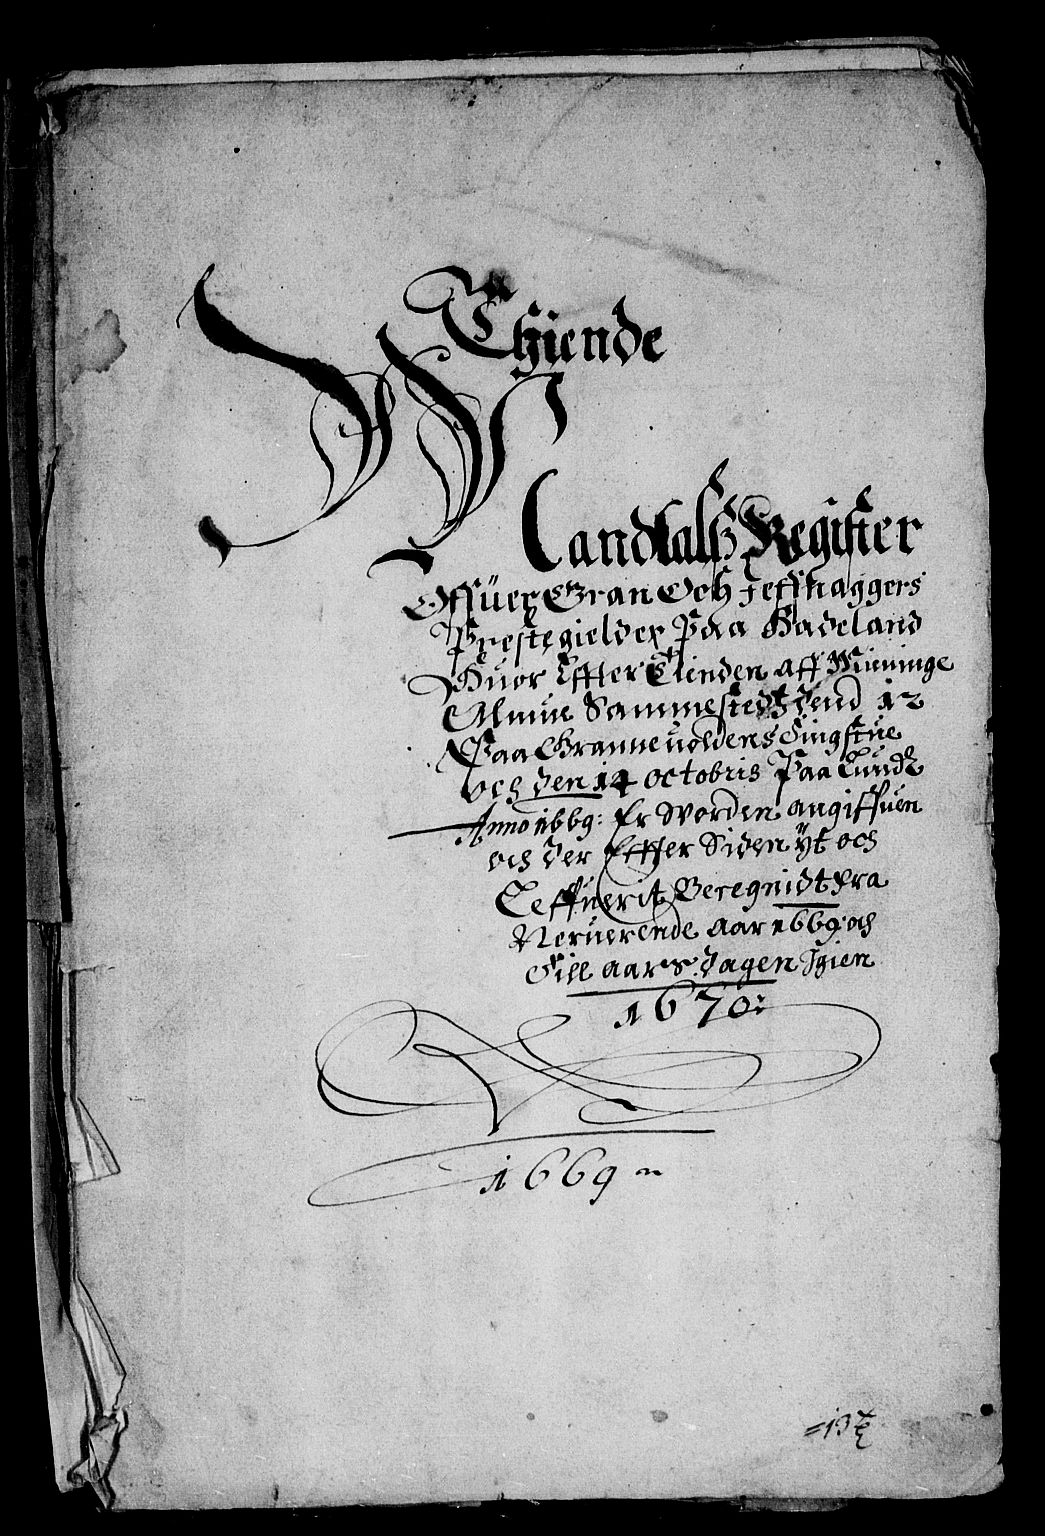 Thiende
Mandtalß Register
Offuer Gran Och Jeffnaggers
Prestegielder Paa Hadeland
Huor Effter Tienden aff Minninge
Almue Sammestedtz dend 12
Paa Granneuoldens Tingstue
och den 14 octobris Paa Lundt
Anno 1669: Er Worden angiffuen
och der Effter Siden yt och
Leffuerit Beregnidt Fra
Neruerende Aar 1669 och
Till Aars dagen Igien
1670:
1669